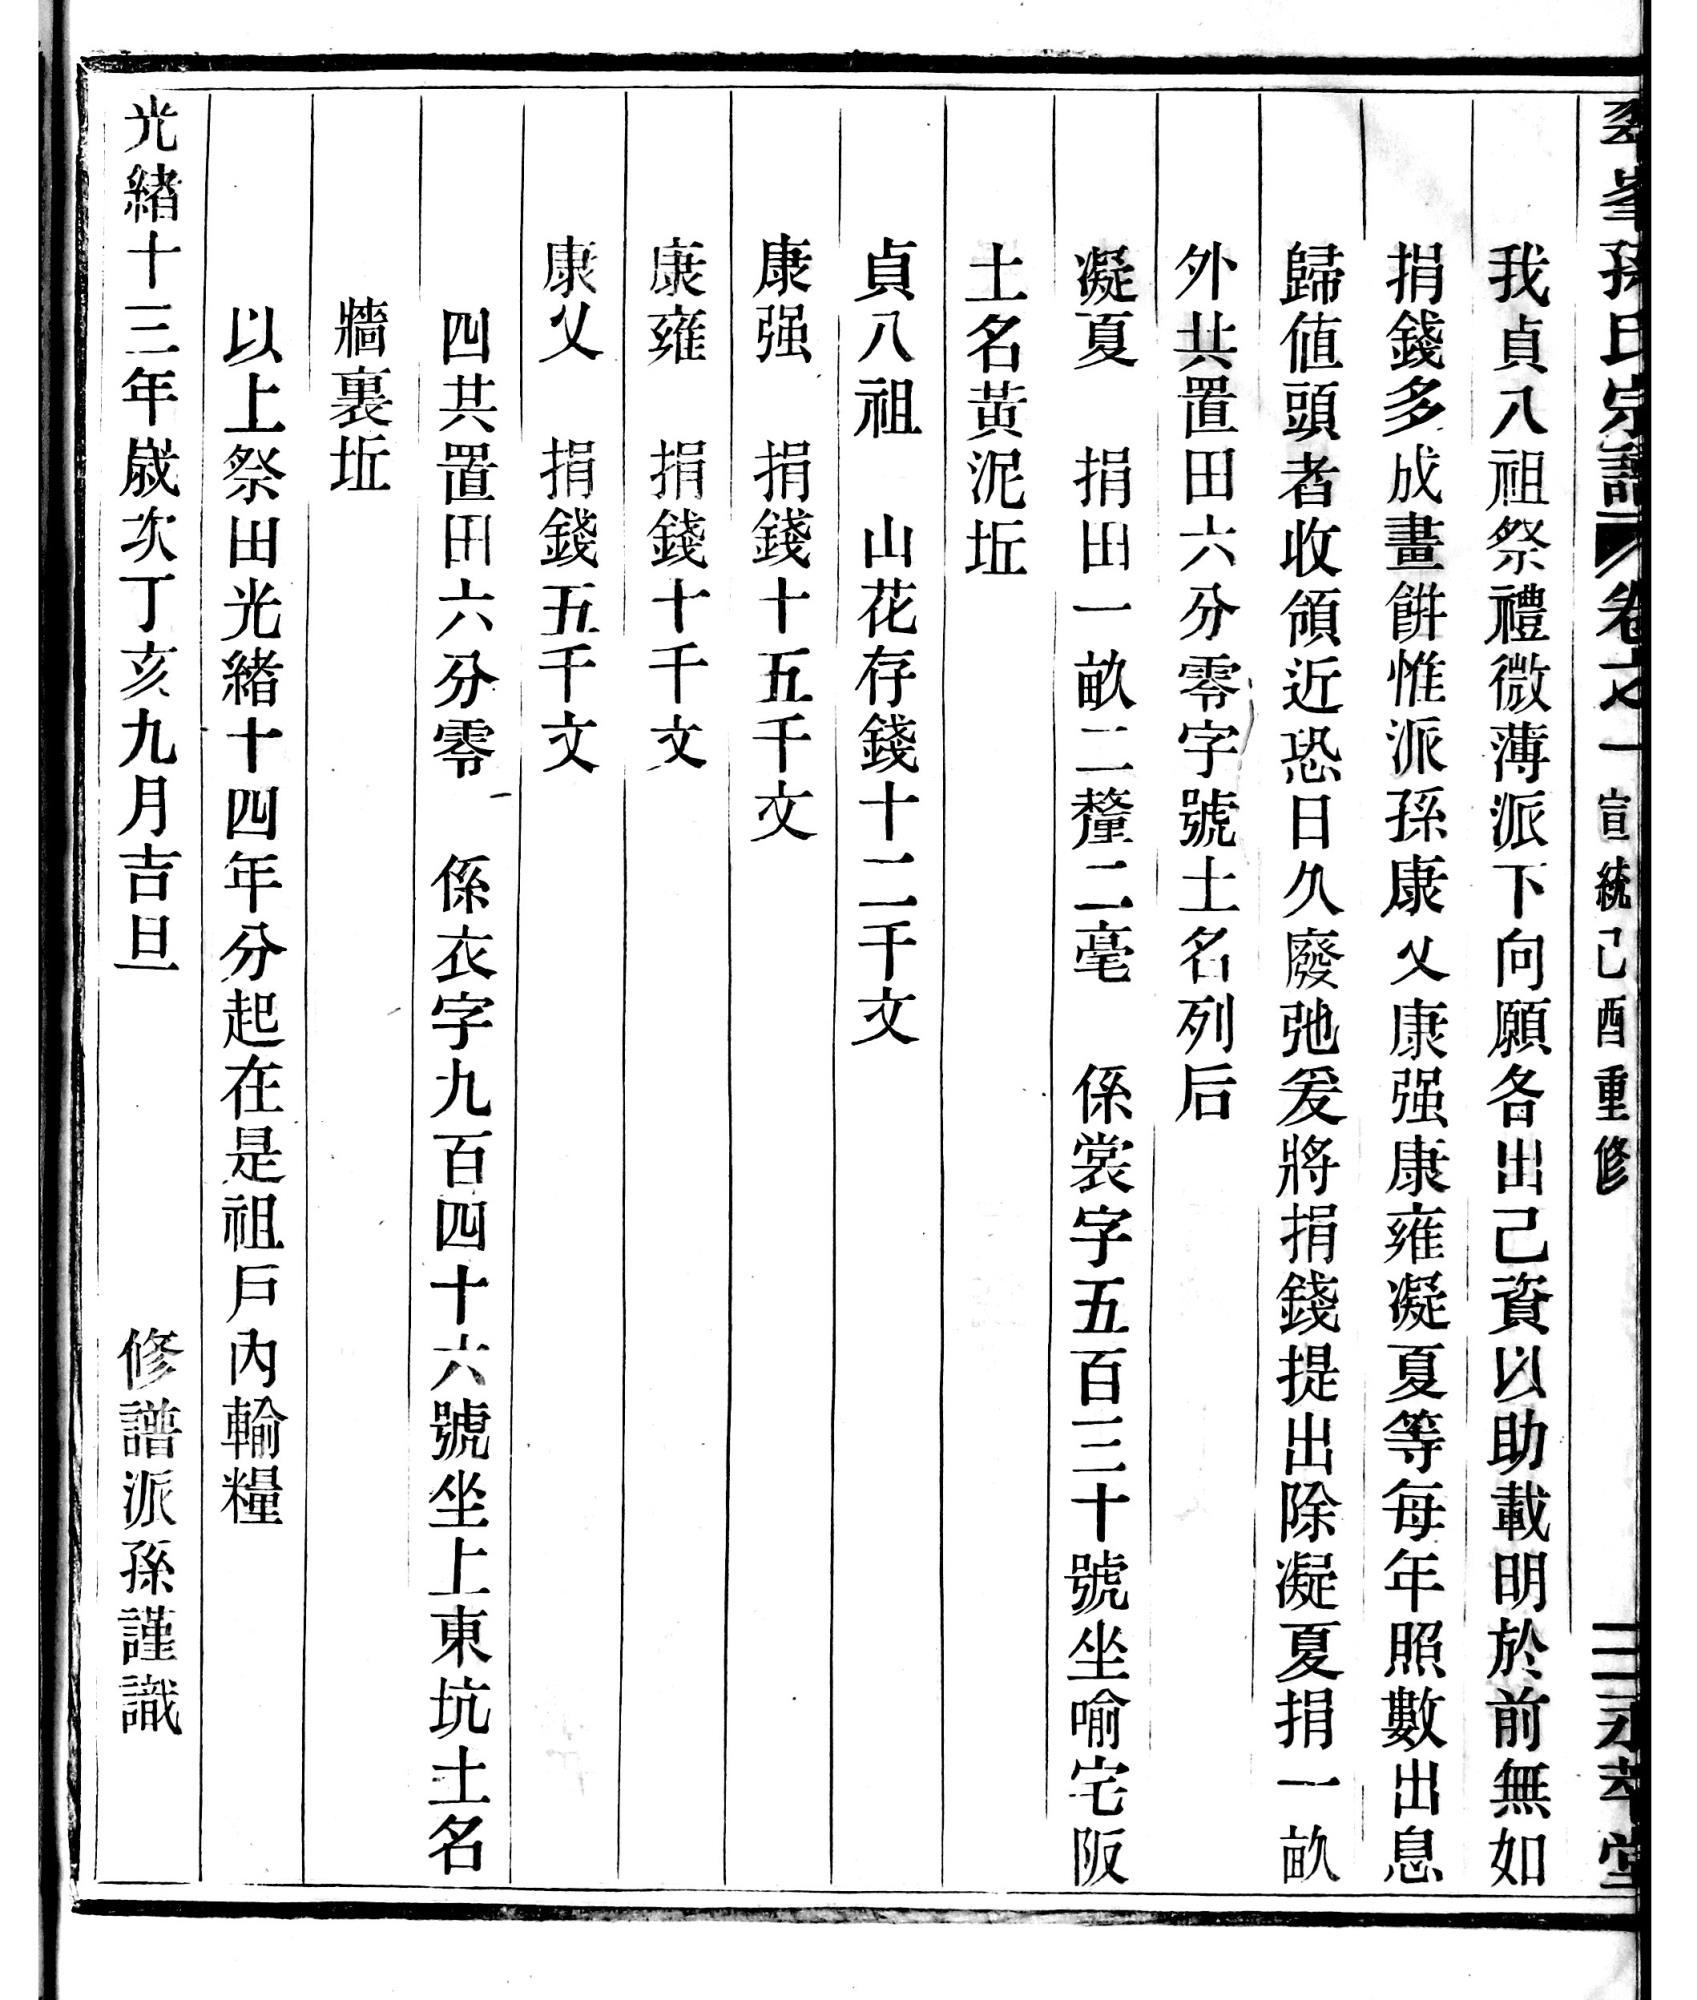 翠峯孫氏宗譜 卷之一 宣統己酉重修 二 永孝堂
我貞八祖祭禮微薄派下向願各出己資以助載明於前無如
捐錢多成畫餠惟派孫康乂康强康雍凝夏等每年照數出息
歸值頭者收領近恐日久廢弛爰將捐錢提出除凝夏捐一畝
外共置田六分零字號土名列后
凝夏 捐田一畝二釐二毫 係裳字五百三十號坐喻宅阪
土名黃泥坵
貞八祖 山花存錢十二千文
康强 捐錢十五千文
康雍 捐錢十千文
康乂 捐錢五千文
四共置田六分零 係衣字九百四十六號坐上東坑土名
牆裏坵
以上祭田光緒十四年分起在是祖戶內輸糧
光緒十三年歲次丁亥九月吉旦 修譜派孫謹識